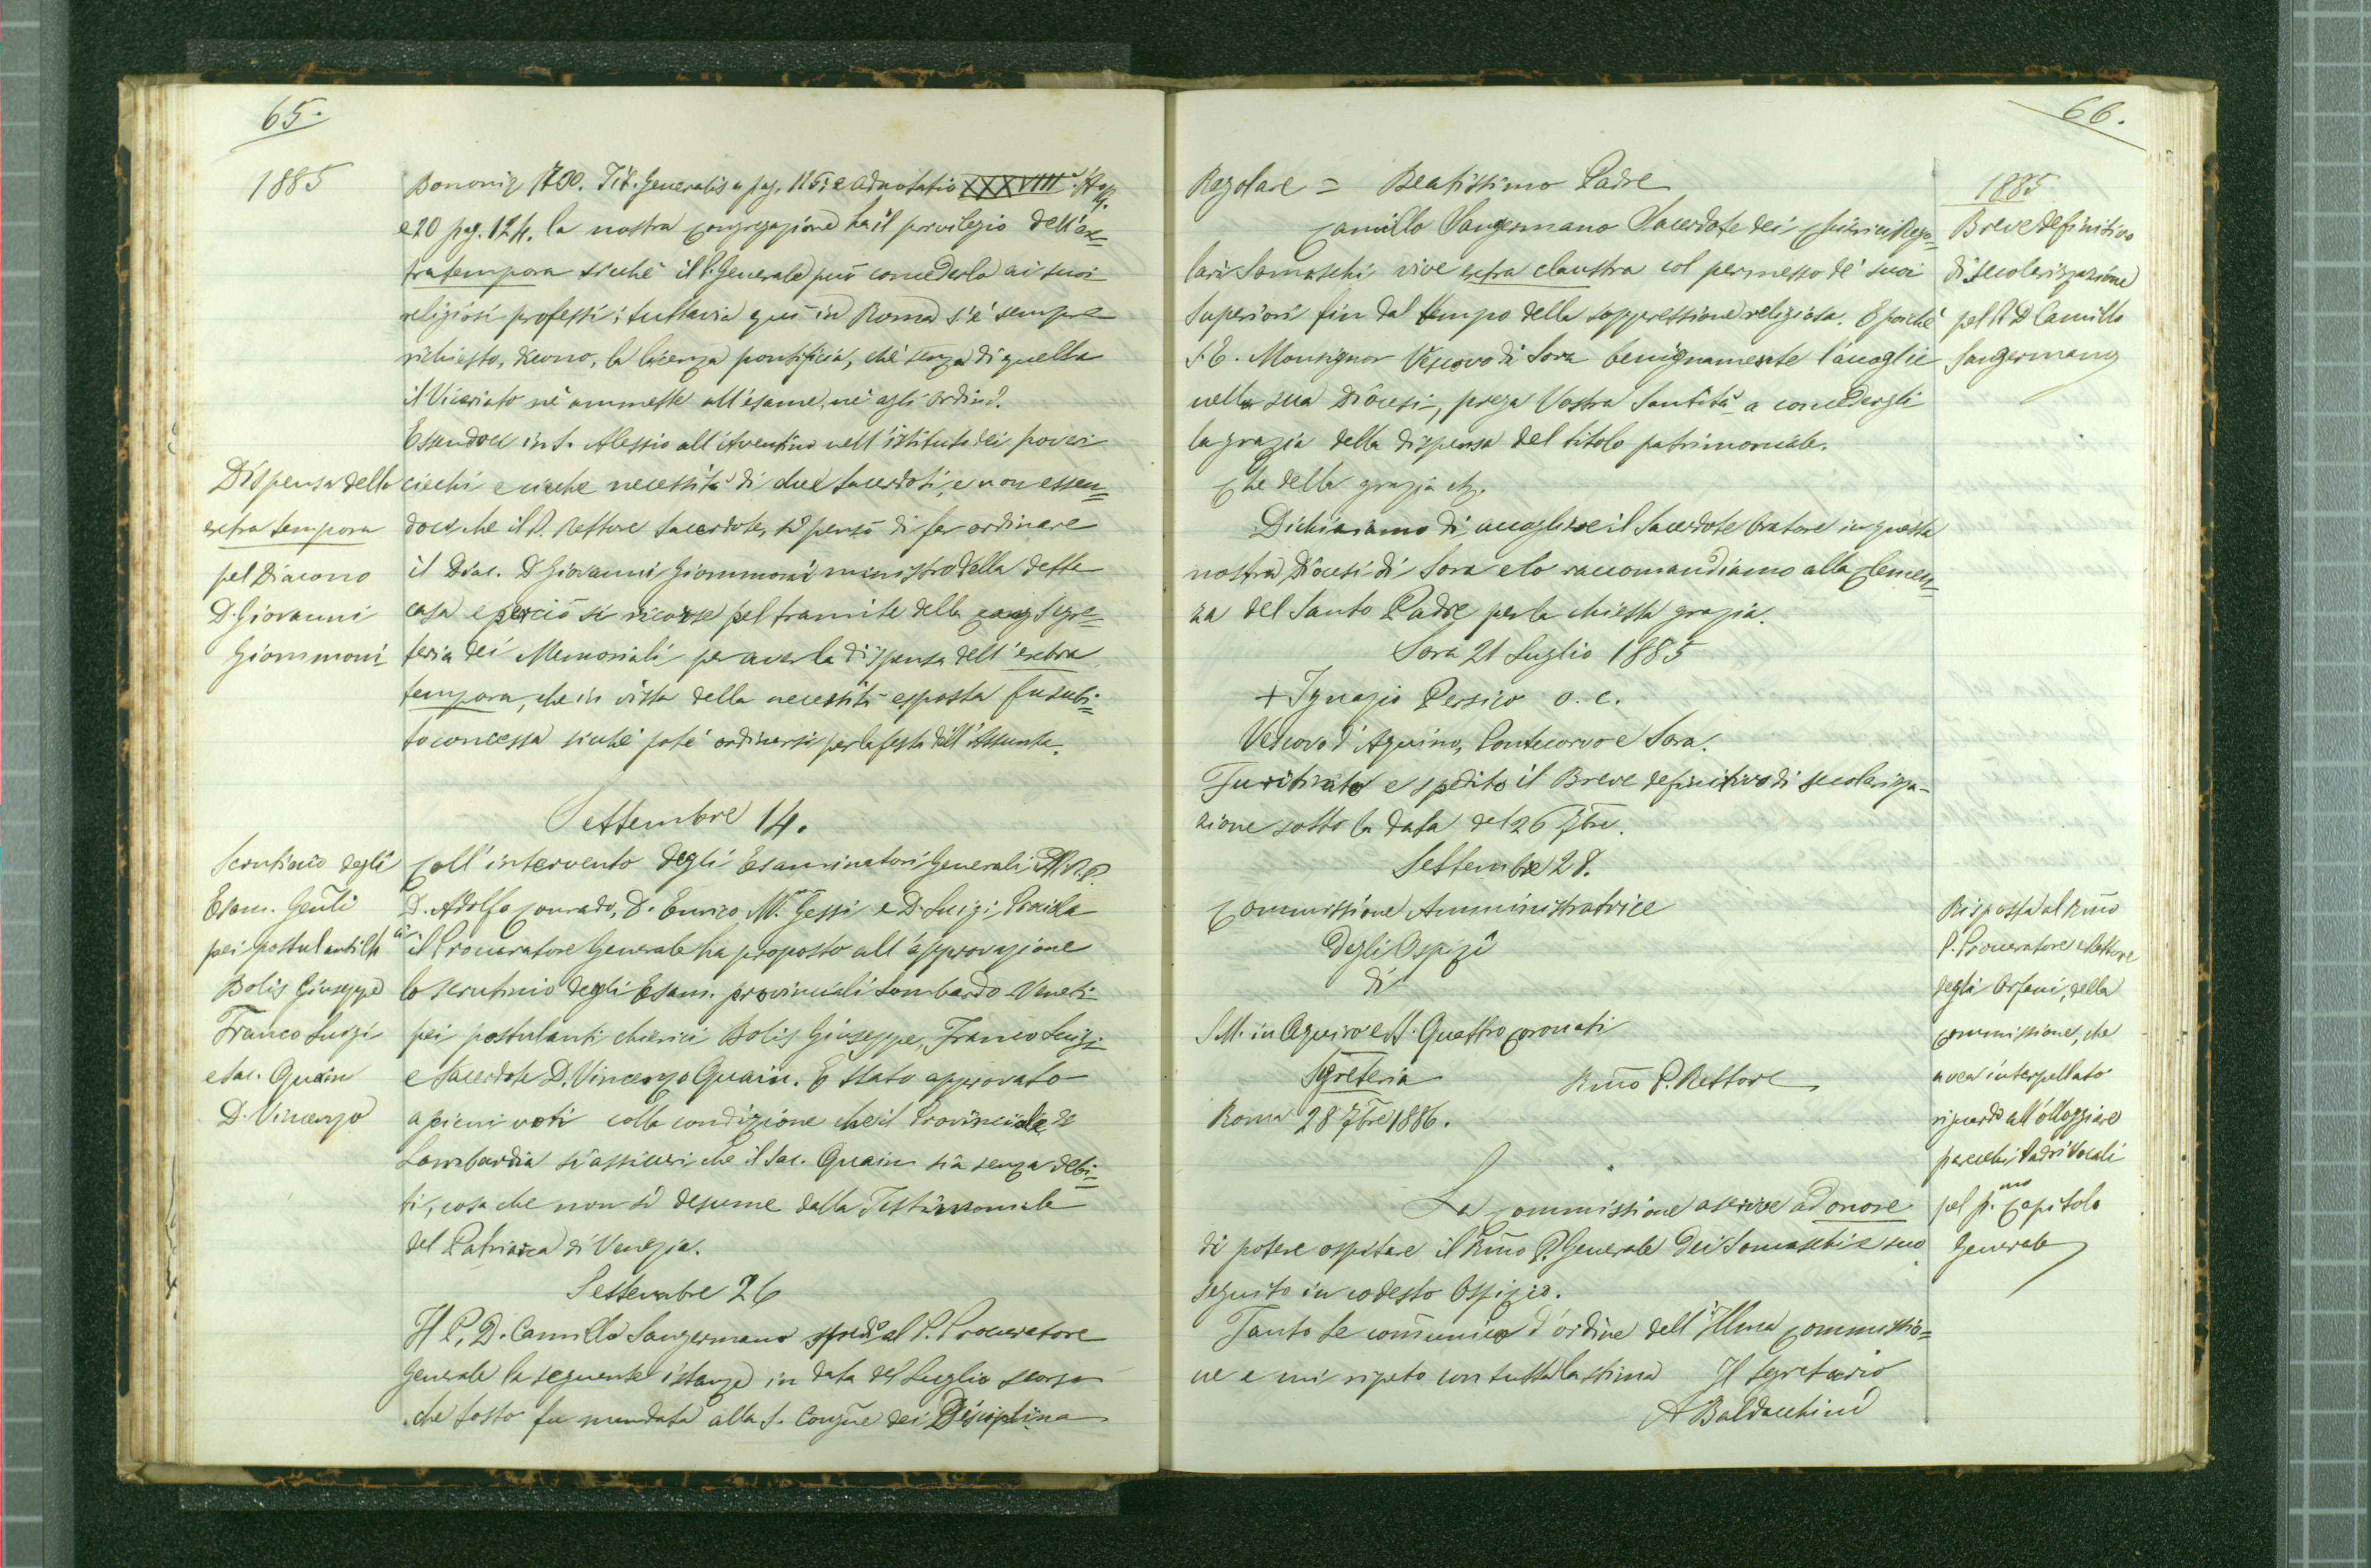 65.
1885
Bononiæ 1700. Tit. Generalis a pag. 115; e adnotatio XXXVIII
e 20 pag. 124. la nostra Congregazione ha il privilegio dell'ex=
tratempora sicché il P. Generale può concederlo ai suoi
religiosi professi; tuttavia quì in Roma s'è sempre
richiesto, dicono, la licenza pontificia, chè senza di quella
il Vicariato nè ammette all'esame, nè agli ordini.
Essendoci in S. Alessio all'Aventino nell'istituto dei poveri
Dispensa della
extra tempora
pel Diacono
D. Giovanni
Giommoni
ciechi e cieche necessità di due sacerdoti, e non essen=
doci che il P. Rettore sacerdote, si pensò di far ordinare
il Diac. D. Giovanni Giommoni ministro della detta
casa e perciò si ricorse pel tramite della Segre=
teria dei Memoriali per aver la dispensa dell'extra
tempora, che in vista della necessità esposta fu subi=
to concessa sicchè potè ordinarsi per la festa dell'Assunta.
Settembre 14.
Scrutinio degli
Esam. Genli
pei postulanti Chci
Bolis Giuseppe
Franco Luigi
e Sac. Quain
D. Vincenzo
Coll'intervento degli Esaminatori Generali M.R.P.
D. Adolfo Conrado, D. Enrico M. Gessi e D. Luigi Procida
il Procuratore Generale ha proposto all'approvazione
lo scrutinio degli Esam. provinciali Lombardo-Veneti
pei postulanti chierici Bolis Giuseppe, Franco Luigi
e Sacerdote D. Vincenzo Quain. È stato approvato
a pieni voti colla condizione che il Provinciale di
Lombardia si assicuri che il Sac. Quain sia senza debi=
ti, cosa che non si desume dalla Testimoniale
del Patriarca di Venezia.
Settembre 26
Il P. D. Camillo Sangermano spedì al P. Procuratore
Generale la seguente istanza in data del Luglio scorso
che tosto fu mandata alla S. Congne dei Disciplina
66.
1885
Regolare = Beatissimo Padre
Camillo Sangermano Sacerdote dei Chierici Rego=
lari Somaschi vive extra claustra col permesso de' suoi
Superiori fin dal tempo della soppressione religiosa. E poichè
S. E. Monsignor Vescovo di Sora benignamente l'accoglie
nella sua Diocesi, prega Vostra Santità a concedergli
la grazia della dispensa del titolo patrimoniale.
Che della grazia etc.
Breve definitivo
di secolarizzazione
pel P. D. Camillo
Sangermano
Dichiariamo di accogliere il Sacerdote Oratore in questa
nostra Diocesi di Sora e lo raccomandiamo alla clemen=
za del Santo Padre per la chiesta grazia.
Sora 21 Luglio 1885
+ Ignazio Persico o. c.
Vescovo d'Aquino, Pontecorvo e Sora.
Fu ritirato e spedito il Breve definitivo di secolarizza-
zione sotto la data del 26 7bre.
Settembre 28.
Commissione Amministratrice
degli Ospizi
di
S. M. in Aquiro e SS. Quattro Coronati
Segreteria
Rmo P. Rettore
Roma 28 7bre 1886.
Risposta al Rmo
P. Procuratore e Rettore
degli Orfani, della
commissione, che
avea interpellato
riguardo all'alloggiare
parecchi Padri Vocali
pel pmo Capitolo
Generale
La Commissione ascrive ad onore
di potere ospitare il Rmo P. Generale dei Somaschi e suo
seguito in codesto Ospizio.
Tanto Le comunico d'ordine dell'Illma Commissio=
ne e mi ripeto con tutta la stima Il Segretario
A Baldacchini